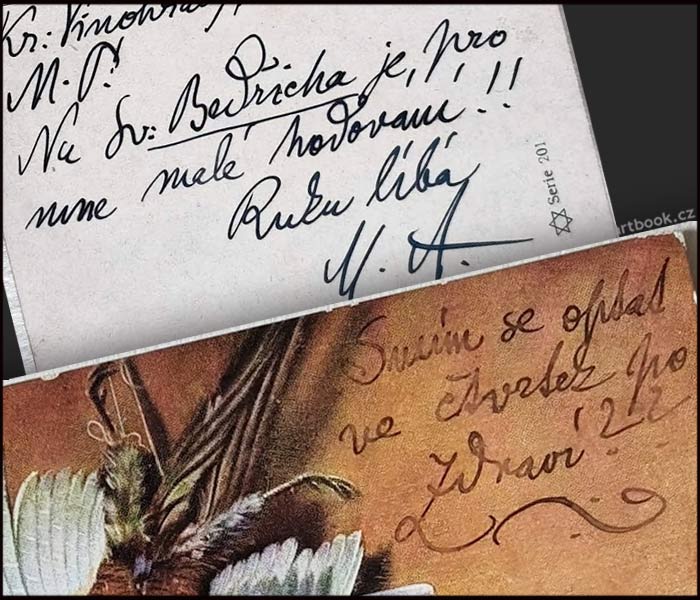 Kr: Vinohrady
M. P!
Na Sv: Bedřicha je, pro
mne malé hodování!!
Ruku líbá
M. A.
Serie 201
artbook.cz
Smím se optat
ve čtvrtek po
zdraví??